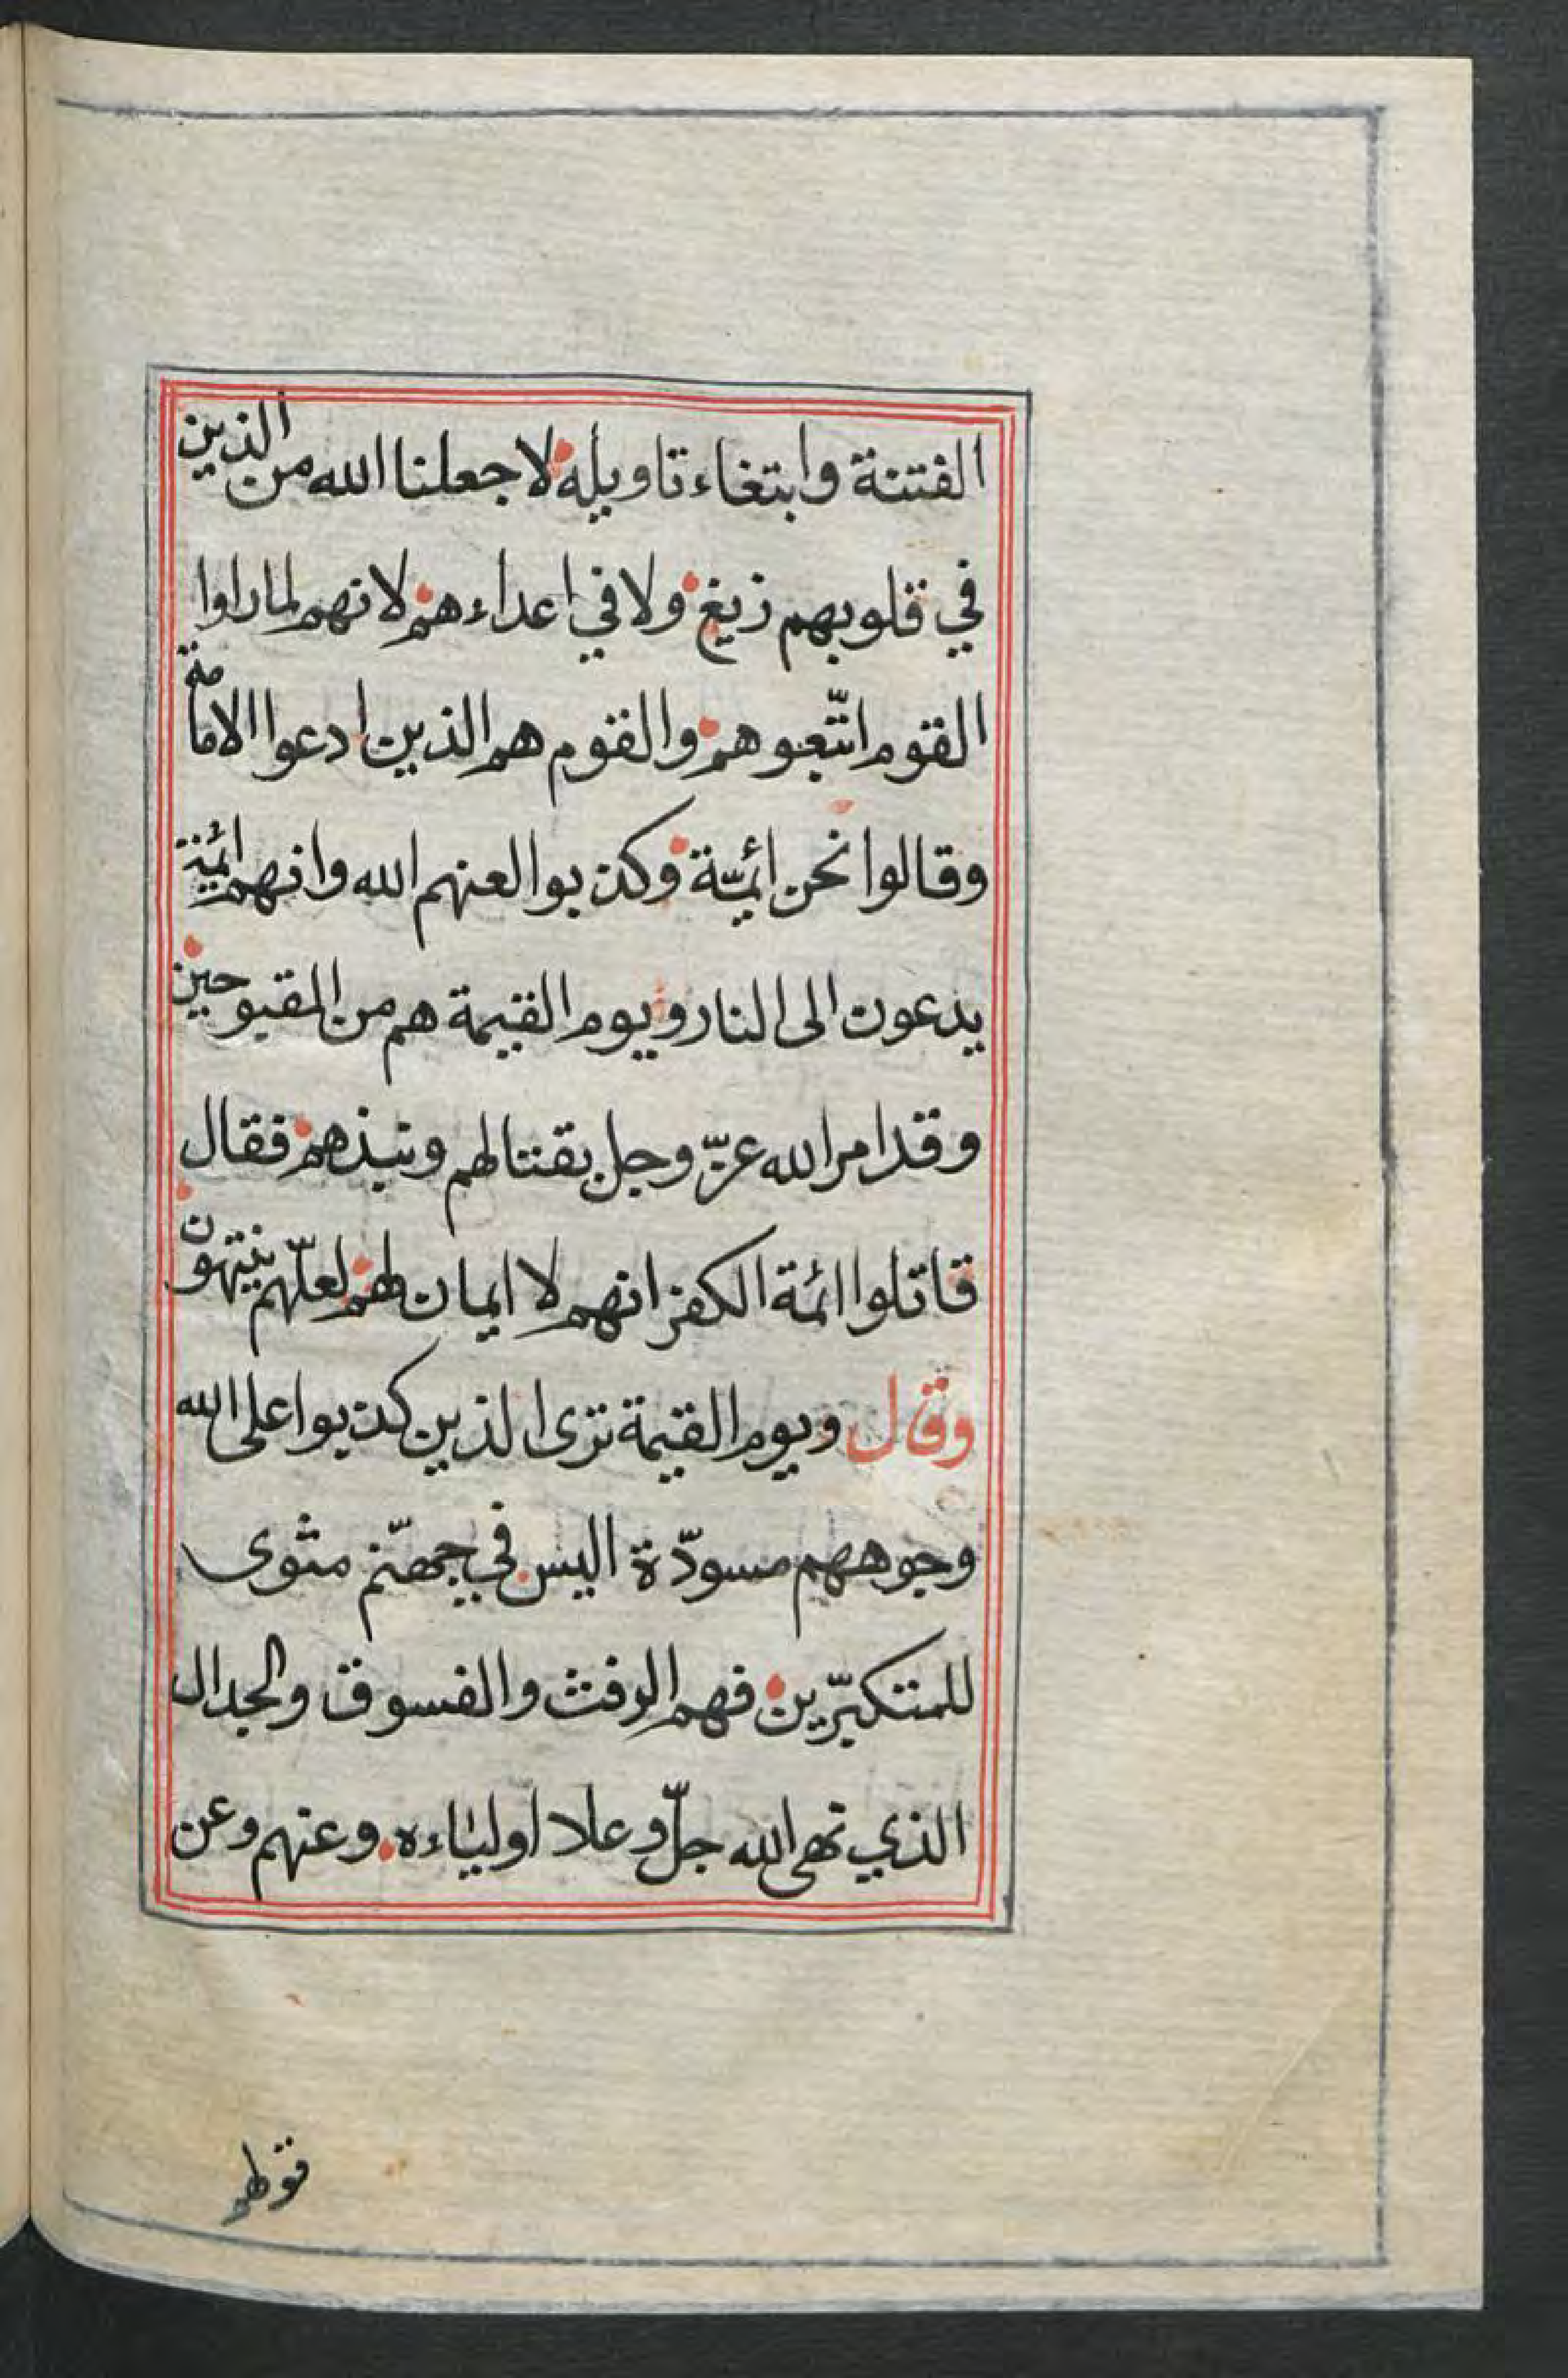 الفتنة وابتغاء تاويله لا جعلنا الله من الذين
في قلوبهم زيغ ولا في اعداءهم لانهم لما راوا
القوم اتّبعوهم والقوم هم الذين ادعوا الامامة
وقالوا نحن ائمّة وكذبوا لعنهم الله وانهم ائمة
يدعون الى النار ويوم القيمة هم من المقبوحين
وقد امر الله عزّ وجل بقتالهم ونبذهم فقال
قاتلوا ائمة الكفر انهم لا ايمان لهم لعلّهم ينتهون
وقال ويوم القيمة ترى الذين كذبوا على الله
وجوههم مسودّة اليس في جهنّم مثوى
للمتكبّرين فهم الرفث والفسوق والجدال
الذي نهى الله جلّ وعلا اولياءه وعنهم وعن
قولهم